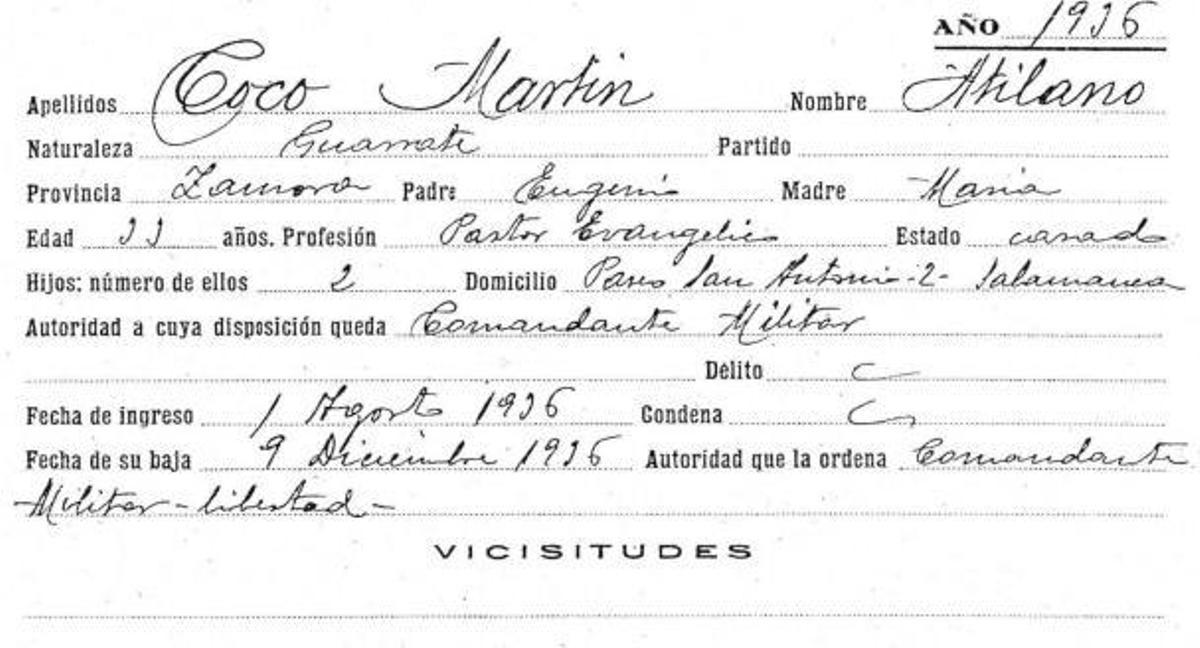 AÑO 1936
Apellidos Coco Martin Nombre Atilano
Naturaleza Guarrate Partido
Provincia Zamora Padre Eugenio Madre Maria
Edad 33 años. Profesión Pastor Evangelico Estado casado
Hijos: número de ellos 2 Domicilio Paseo San Antonio -2- Salamanca
Autoridad a cuya disposición queda Comandante Militar
Delito
Fecha de ingreso 1 Agosto 1936 Condena
Fecha de su baja 9 Diciembre 1936 Autoridad que la ordena Comandante
Militar - libertad -
VICISITUDES